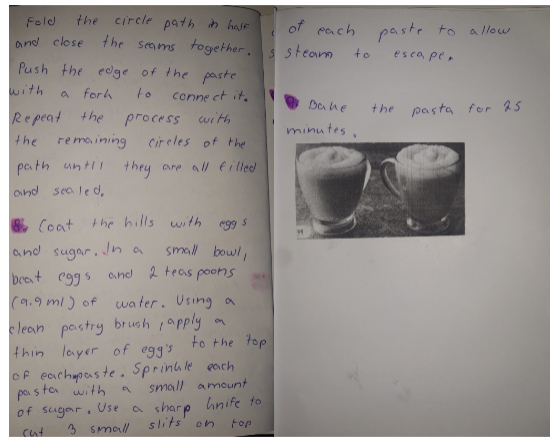 Fold the circle path in half
and close the seams together.
Push the edge of the paste
with a fork to connect it.
Repeat the process with
the remaining circles of the
path until they are all filled
and sealed.
8. Coat the hills with eggs
and sugar. In a small bowl,
beat eggs and 2 teaspoons
(9.9 ml) of water. Using a
clean pastry brush, apply a
thin layer of egg's to the top
of each paste. Sprinkle each
pasta with a small amount
of sugar. Use a sharp knife to
cut 3 small slits on top
of each paste to allow
steam to escape.
Bake the pasta for 25
minutes.